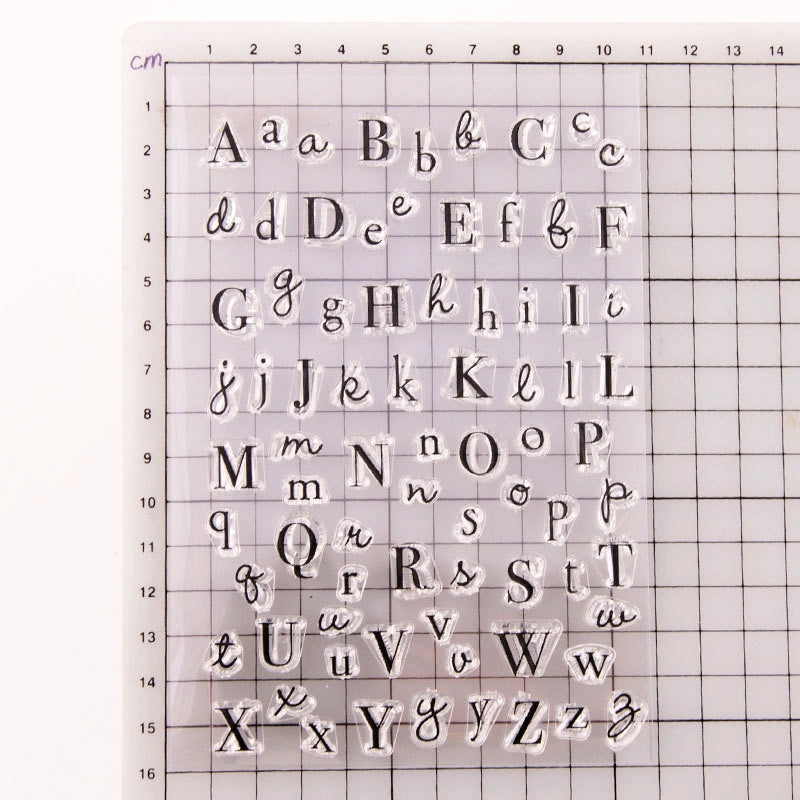 1 2 3 4 5 6 7 8 9 10 11 12 13 14
cm
1 2 3 4 5 6 7 8 9 10 11 12 13 14 15 16
A a a B b b C c c
d d D e e E f f F
G g g H h h i I i
j j J k k K l l L
M m m N n n O o o P p p
q Q q r r R s s S t T
t U u u V v v W w w
X x x Y y y Z z z